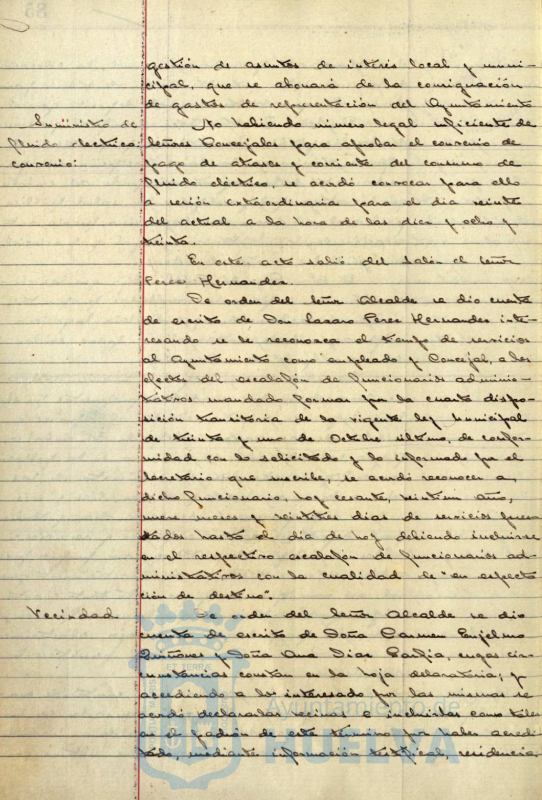 gestión de asuntos de interés local y muni-
cipal, que se abonará de la consignación
de gastos de representación del Ayuntamiento
Suministro de fluido electrico: convenio:
No habiendo número legal suficiente de
señores Concejales para aprobar el convenio de
pago de atrasos y corriente del consumo de
fluido eléctrico, se acordó convocar para ello
a sesión extraordinaria para el dia veinte
del actual a la hora de las diez y ocho y
treinta.
En este acto salió del salón el señor
Perez Hernandez.
De orden del Señor Alcalde se dio cuenta
de escrito de Don Lazaro Perez Hernandez inte-
resando se le reconozca el tiempo de servicios
al Ayuntamiento como empleado y Concejal, a los
efectos del escalafón de funcionarios adminis-
trativos mandado formar por la cuarta dispo-
sición transitoria de la vigente ley municipal
de treinta y uno de Octubre último, de confor-
midad con lo solicitado y lo informado por el
Secretario que suscribe, se acordó reconocer a
dicho funcionario, hoy cesante, año,
nueve meses y veintitres dias de servicios pres-
tados hasta el dia de hoy debiendo incluirse
en el respectivo escalafón de funcionarios ad-
ministrativos con la cualidad de "en especta
ción de destino".
Vecindad
De orden del Señor Alcalde se dio
cuenta de escrito de Doña Carmen
Quiñones y Doña Ana Diaz cuyas cir-
cunstancias constan en la hoja declaratoria; y
accediendo a lo interesado por las mismas se
acordó declararlas vecinas e incluirlas como tales
en el padrón de este termino por haber acredi-
tado, mediante información testifical, residencia
ET TERRÆ
Ayuntamiento de
HUELVA